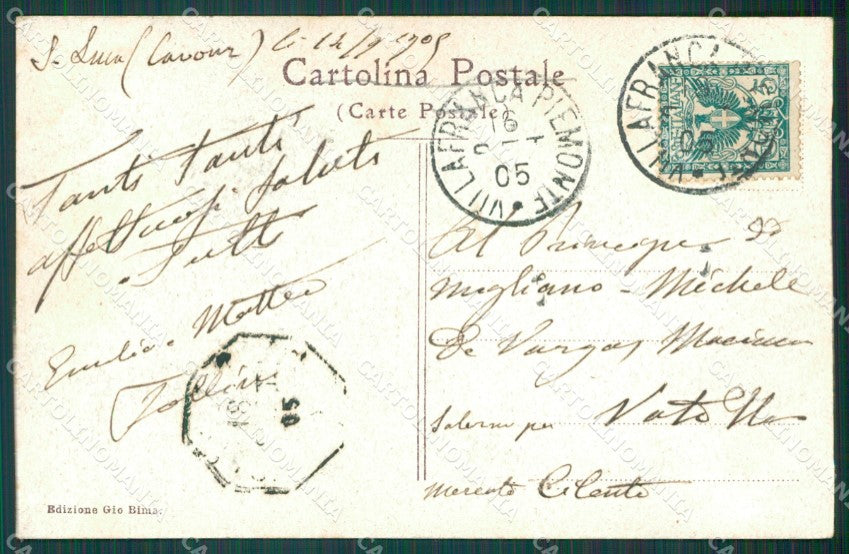 S. Luca (Cavour) li 14/9 1905
Cartolina Postale
(Carte Postale)
VILLAFRANCA PIEMONTE
16
05
VILLAFRANCA
05
POSTE ITALIANE
Tanti Tanti
affettuosi saluti
Tutti
Emilia Matteo
Al Principe Di
Migliano - Michele
De Vargas Machuca
Salerno per Vatolla
Mercato Cilento
05
Edizione Gio Bima.
CARTOLINOMANIA